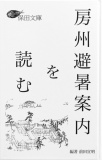 保田文庫
房州避暑案内
を
読む
編著